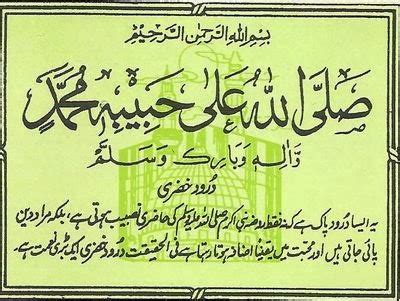 بِسْمِ اللهِ الرَّحْمٰنِ الرَّحِيْمِ
صَلَّى اللهُ عَلٰى حَبِيْبِهٖ مُحَمَّدٍ
وَّاٰلِهٖ وَبَارِكْ وَسَلِّمْ
درود خضری
یہ ایسا درود پاک ہے کہ نہ فقط روضۂ نبی اکرم صلی اللہ علیہ وسلم کی حاضری نصیب ہوتی ہے، بلکہ مراد دین
پائی جاتی ہیں اور محبت میں یقیناً اضافہ ہوتا رہتا ہے فی الحقیقت درود خضری ایک بڑی نعمت ہے۔